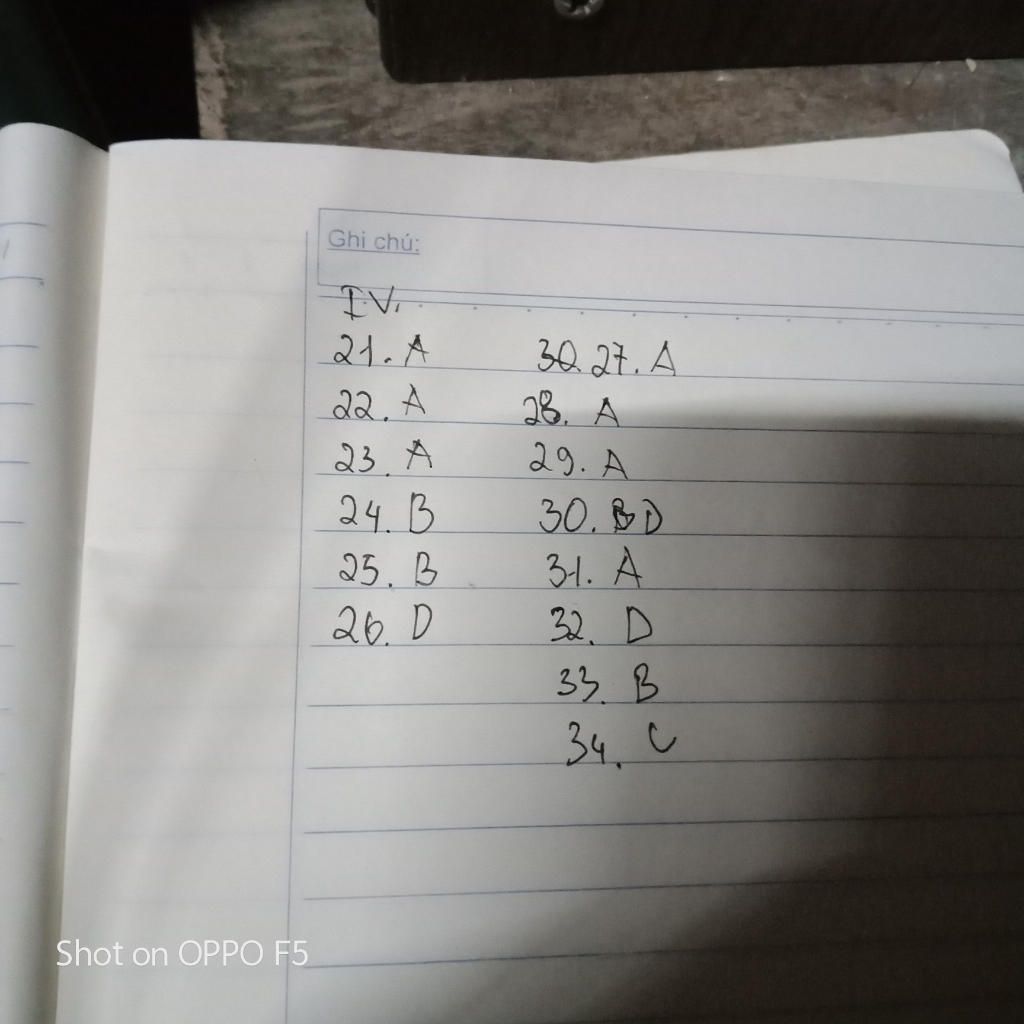 Ghi chú:
IV.
21. A
22. A
23. A
24. B
25. B
26. D
30. 27. A
28. A
29. A
30. B D
31. A
32. D
33. B
34. C
Shot on OPPO F5